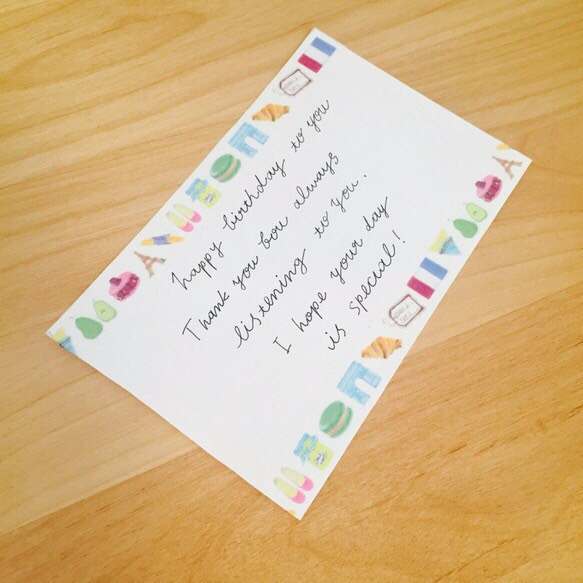 happy birthday to you
Thank you bou always
listening to you.
I hope your day
is special!